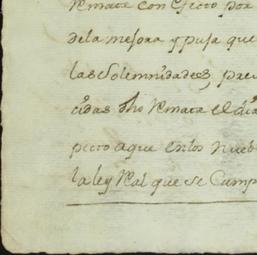 Remate con efecto por
de la mejora y puja que
las Solemnidades, prev
cidas dho Remate el dia
pecto a que en los nueb
la ley Real que se Cump